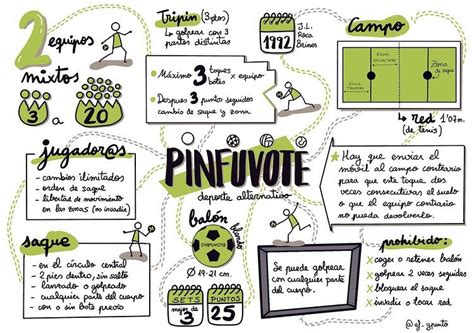 2 equipos
mixtos
3 a 20
Tripin (3ptos)
Lo golpear con 3
partes distintas
• Máximo 3 toques botes x equipo
• Despues 3 puntos seguidos
cambio de saque y zona
1992
J.L.
Roca
Campo
Zona
de saque
red 1'07m.
(de tenis)
jugador@s
- cambios ilimitados
- orden de saque
- libertad de movimiento
en las zonas (no invadir)
PINFUVOTE
deporte alternativo
Hay que enviar el
móvil al campo contrario
para que este toque dos
veces consecutivas el suelo
o que el equipo contrario
no pueda devolverlo.
saque
- en el círculo central
- 2 pies dentro, sin salto
- lanzado o golpeado
- cualquier parte del cuerpo
- con o sin bote previo
balón
blando
PINFUVOTE
Ø 19-21 cm.
SETS
mejor de 3
PUNTOS
25
Se puede golpear
con cualquier parte
del cuerpo.
prohibido:
coger o retener balón
golpear 2 veces seguidas
bloquear el saque
invadir o tocar red